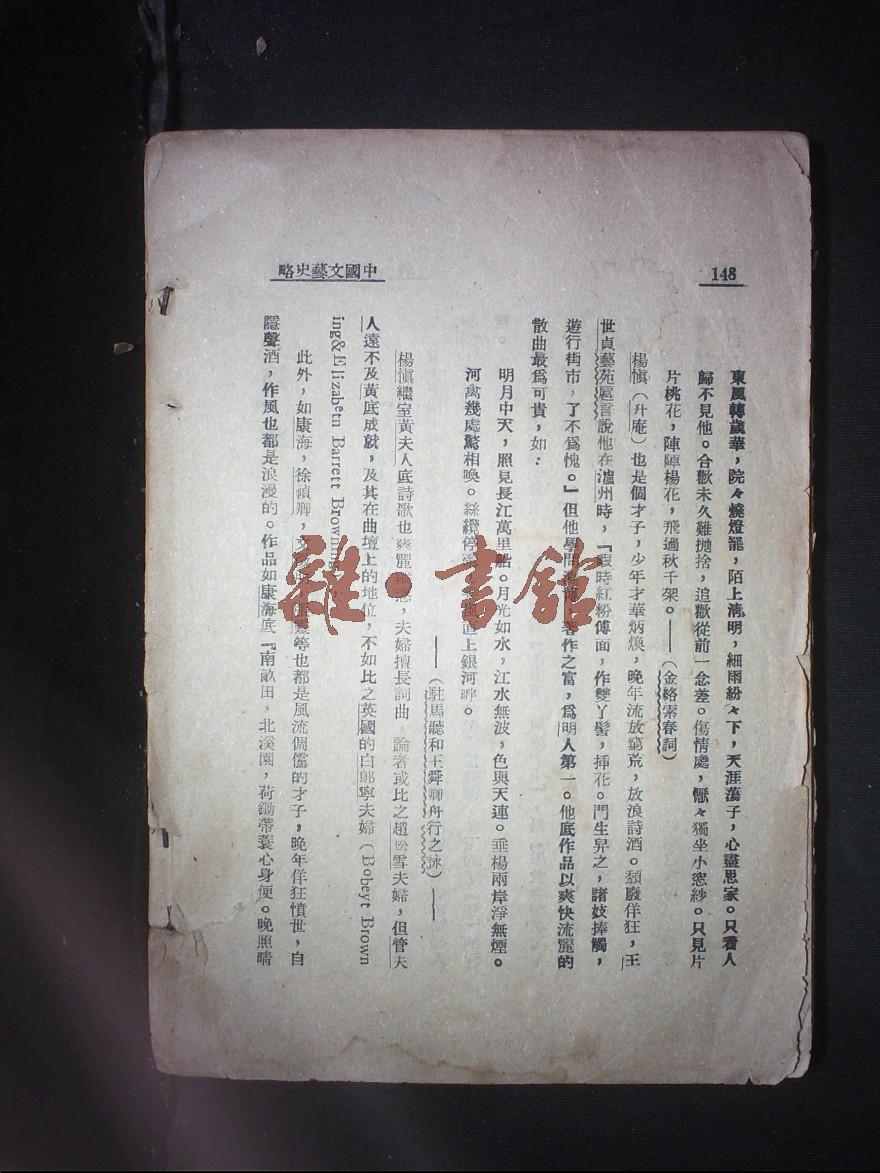 148
中國文藝史略
東風轉歲華，院々燒燈罷，陌上清明，細雨紛々下，天涯蕩子，心盡思家。只看人
歸不見他。合歡未久難抛捨，追歡從前一念差。傷情處，懨々獨坐小窓紗。只見片
片桃花，陣陣楊花，飛過秋千架。——（金絡索春詞）
楊愼（升庵）也是個才子，少年才華炳煥，晚年流放窮荒，放浪詩酒。頹廢佯狂，王
世貞藝苑巵言說他在瀘州時，「暇時紅粉傅面，作雙丫髻，揷花。門生舁之，諸妓捧觴，
遊行街市，了不爲愧。」但他學問淵、著作之富，爲明人第一。他底作品以爽快流麗的
散曲最爲可貴，如：
明月中天，照見長江萬里船。月光如水，江水無波，色與天連。垂楊兩岸淨無煙。
河禽幾處驚相喚。絲纜停直上銀河畔。
——（駐馬聽和王舜卿舟行之詠）——
楊愼繼室黃夫人底詩歌也爽麗，夫婦擅長詞曲，論者或比之趙松雪夫婦，但管夫
人遠不及黃底成就，及其在曲壇上的地位，不如比之英國的白郎寧夫婦（Bobeyt Brown
ing&Elizabetn Barrett Browning
此外，如康海，徐禎卿，等也都是風流倜儻的才子，晚年佯狂憤世，自
隱聲酒，作風也都是浪漫的。作品如康海底『南畝田，北溪園，荷鋤帶蓑心身便。晚照晴
雜·書館